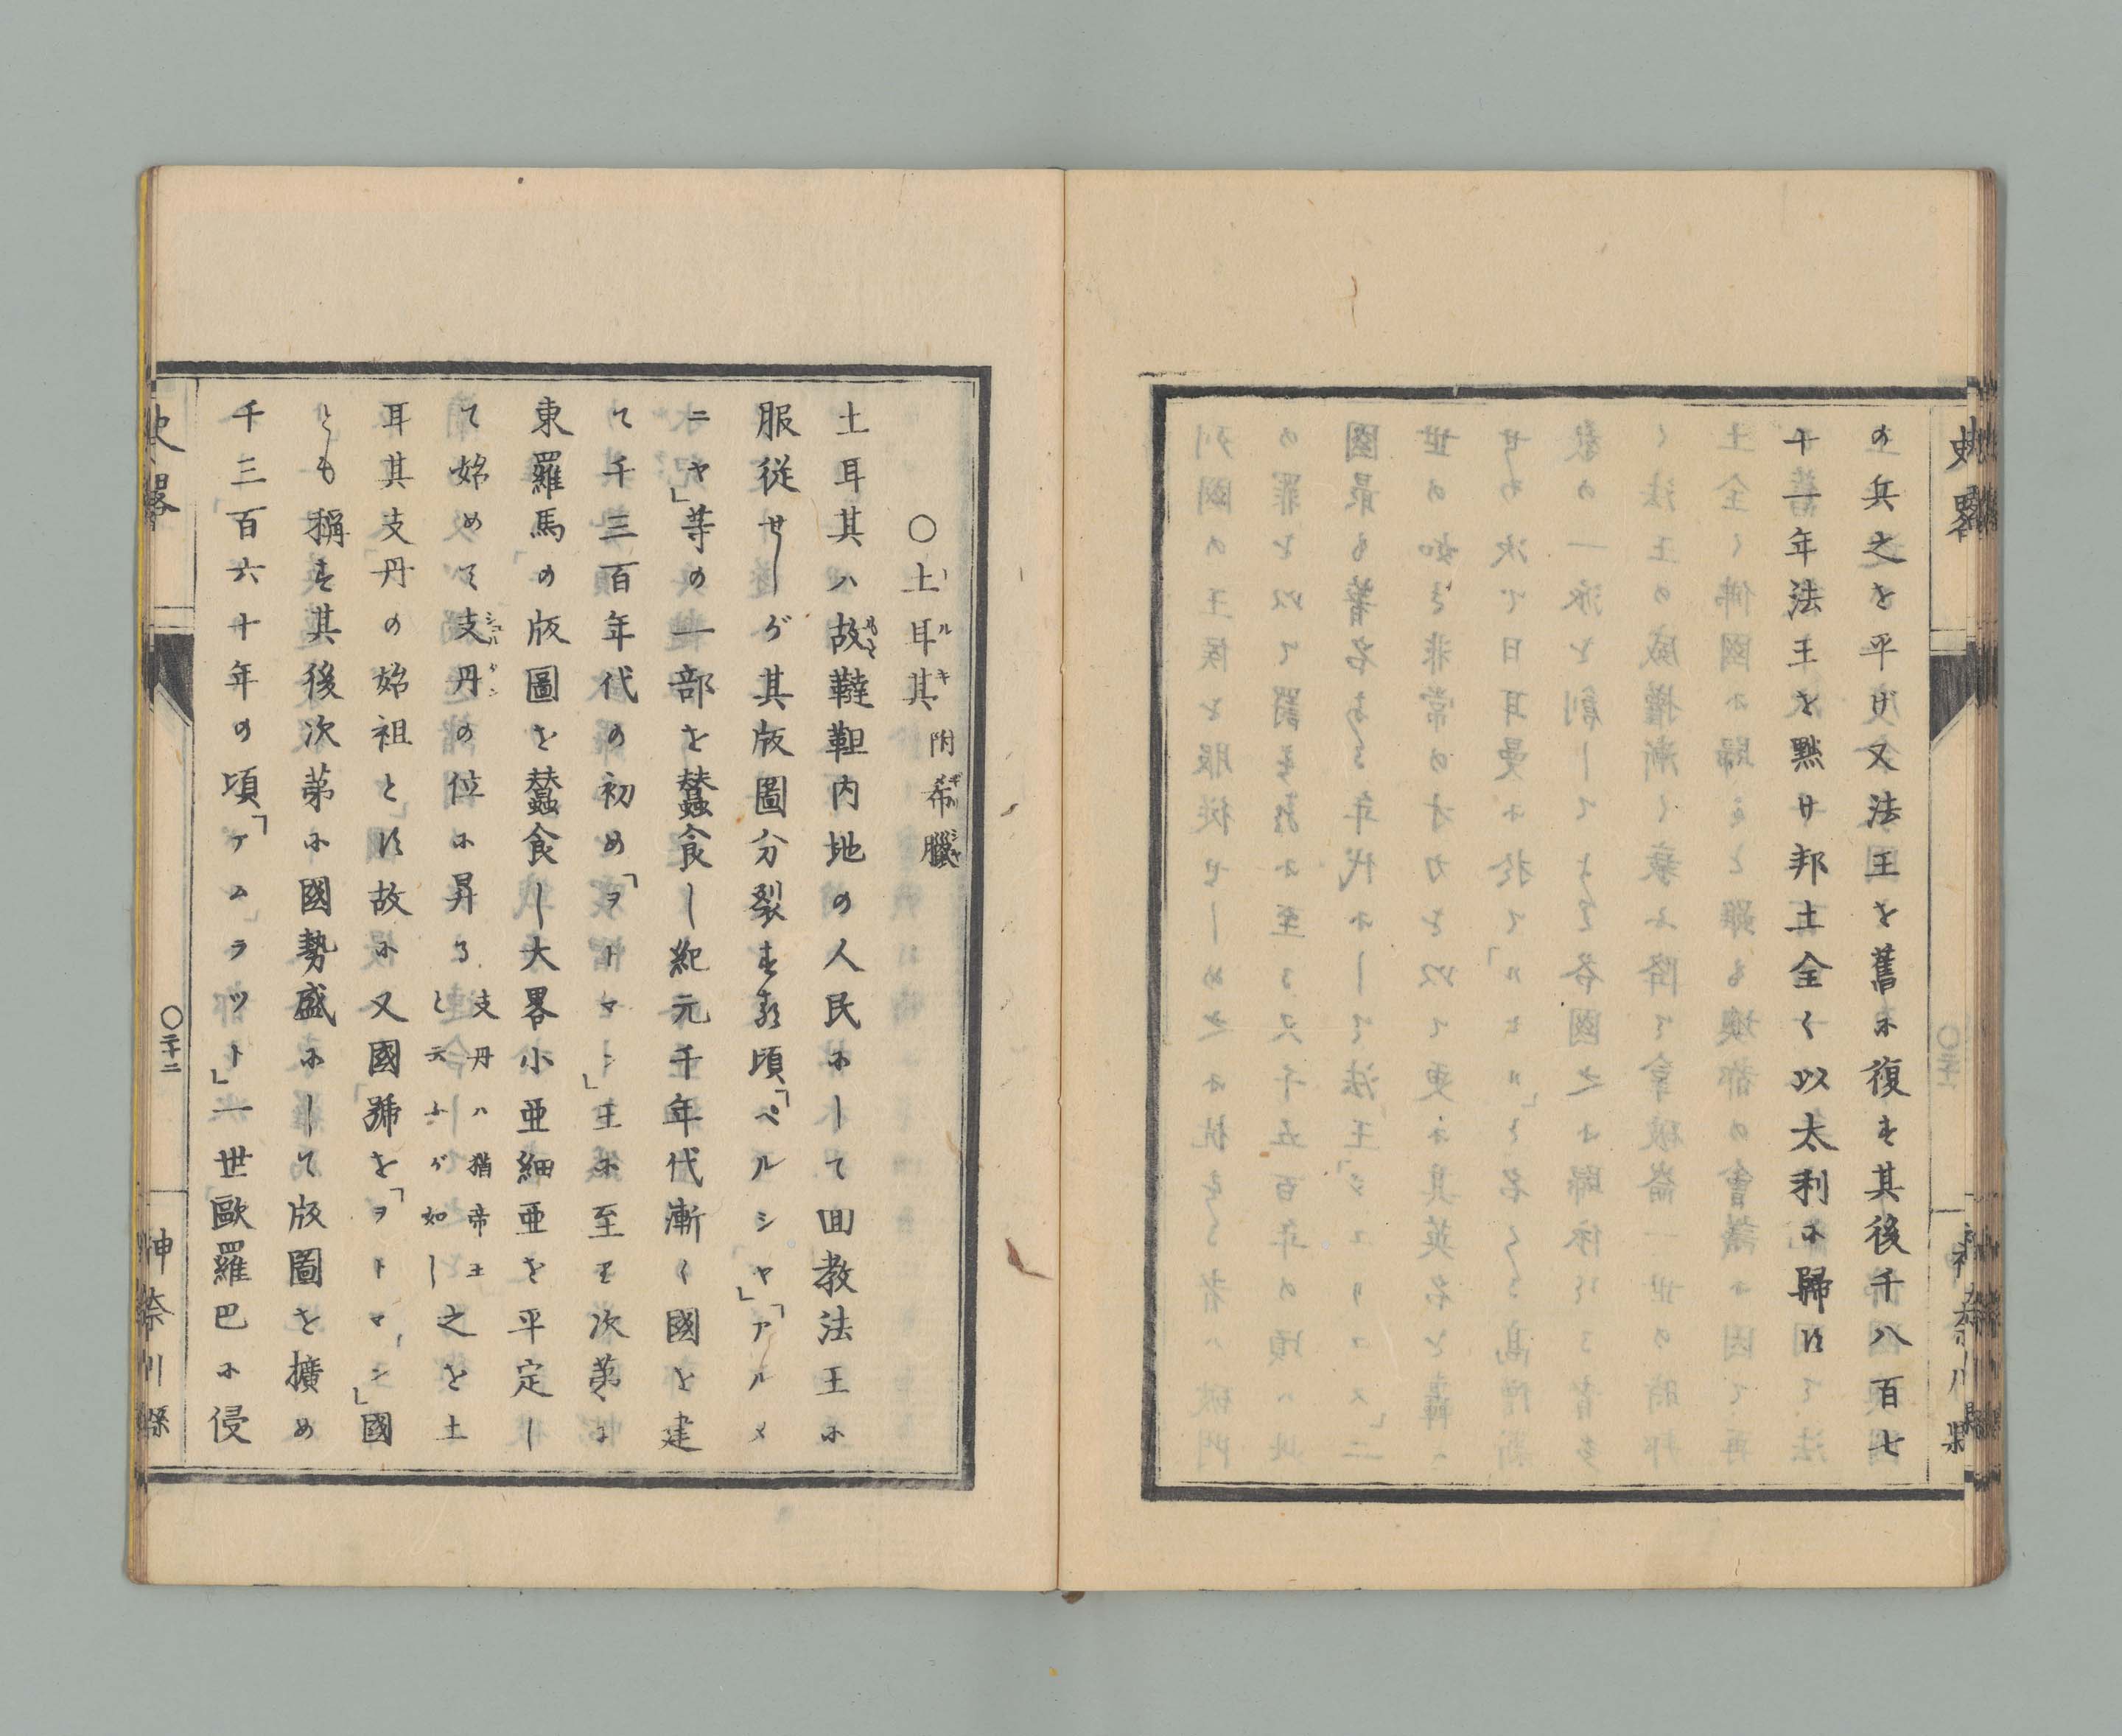 の兵之を平げ又法王を舊に復す其後千八百七
十一年法王を黙け邦土全く以太利に歸す
史畧
神奈川縣
○土耳其 附希臘
トルキ
ギリシヤ
土耳其ハ故韃靼内地の人民にして回教法王に
もと
服従せしが其版圖分裂する頃「ペルシヤ」「アルメ
ニヤ」等の一部を蠶食し紀元千年代漸く國を建
て千三百年代の初め「ヲトマン」王に至て次第に
東羅馬の版圖を蠶食し大畧小亜細亜を平定し
て始めて支丹の位に昇る 支丹ハ猶帝王と云ふが如し 之を土
シュルタン
耳其支丹の始祖とす故に又國號を「ヲトマン」國
とも稱す其後次第に國勢盛にして版圖を擴め
千三百六十年の頃「アムラツト」一世歐羅巴に侵
史畧
○三十二
神奈川縣